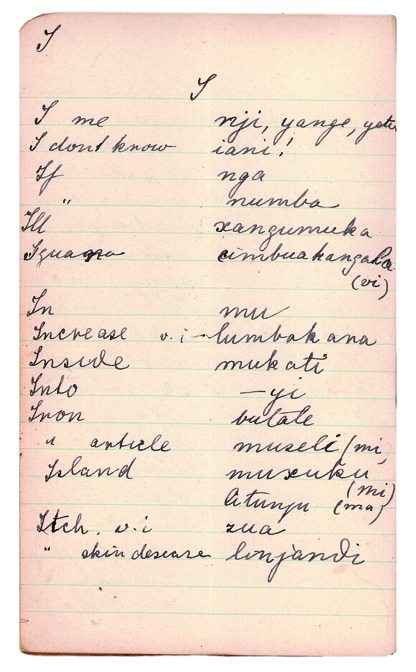 I
I
I me nji, yange, yetu
I dont know iani!
If nga
" numba
Ill xangumuka
Iguana cimbuakangala
(vi)
In mu
Increase v.i - lumbakana
Inside mukati
Into -yi
Iron butale
" article museli (mi,
Island muxuku
(mi)
litungu (ma)
Itch. v.i zua
" skin desease lonjandi